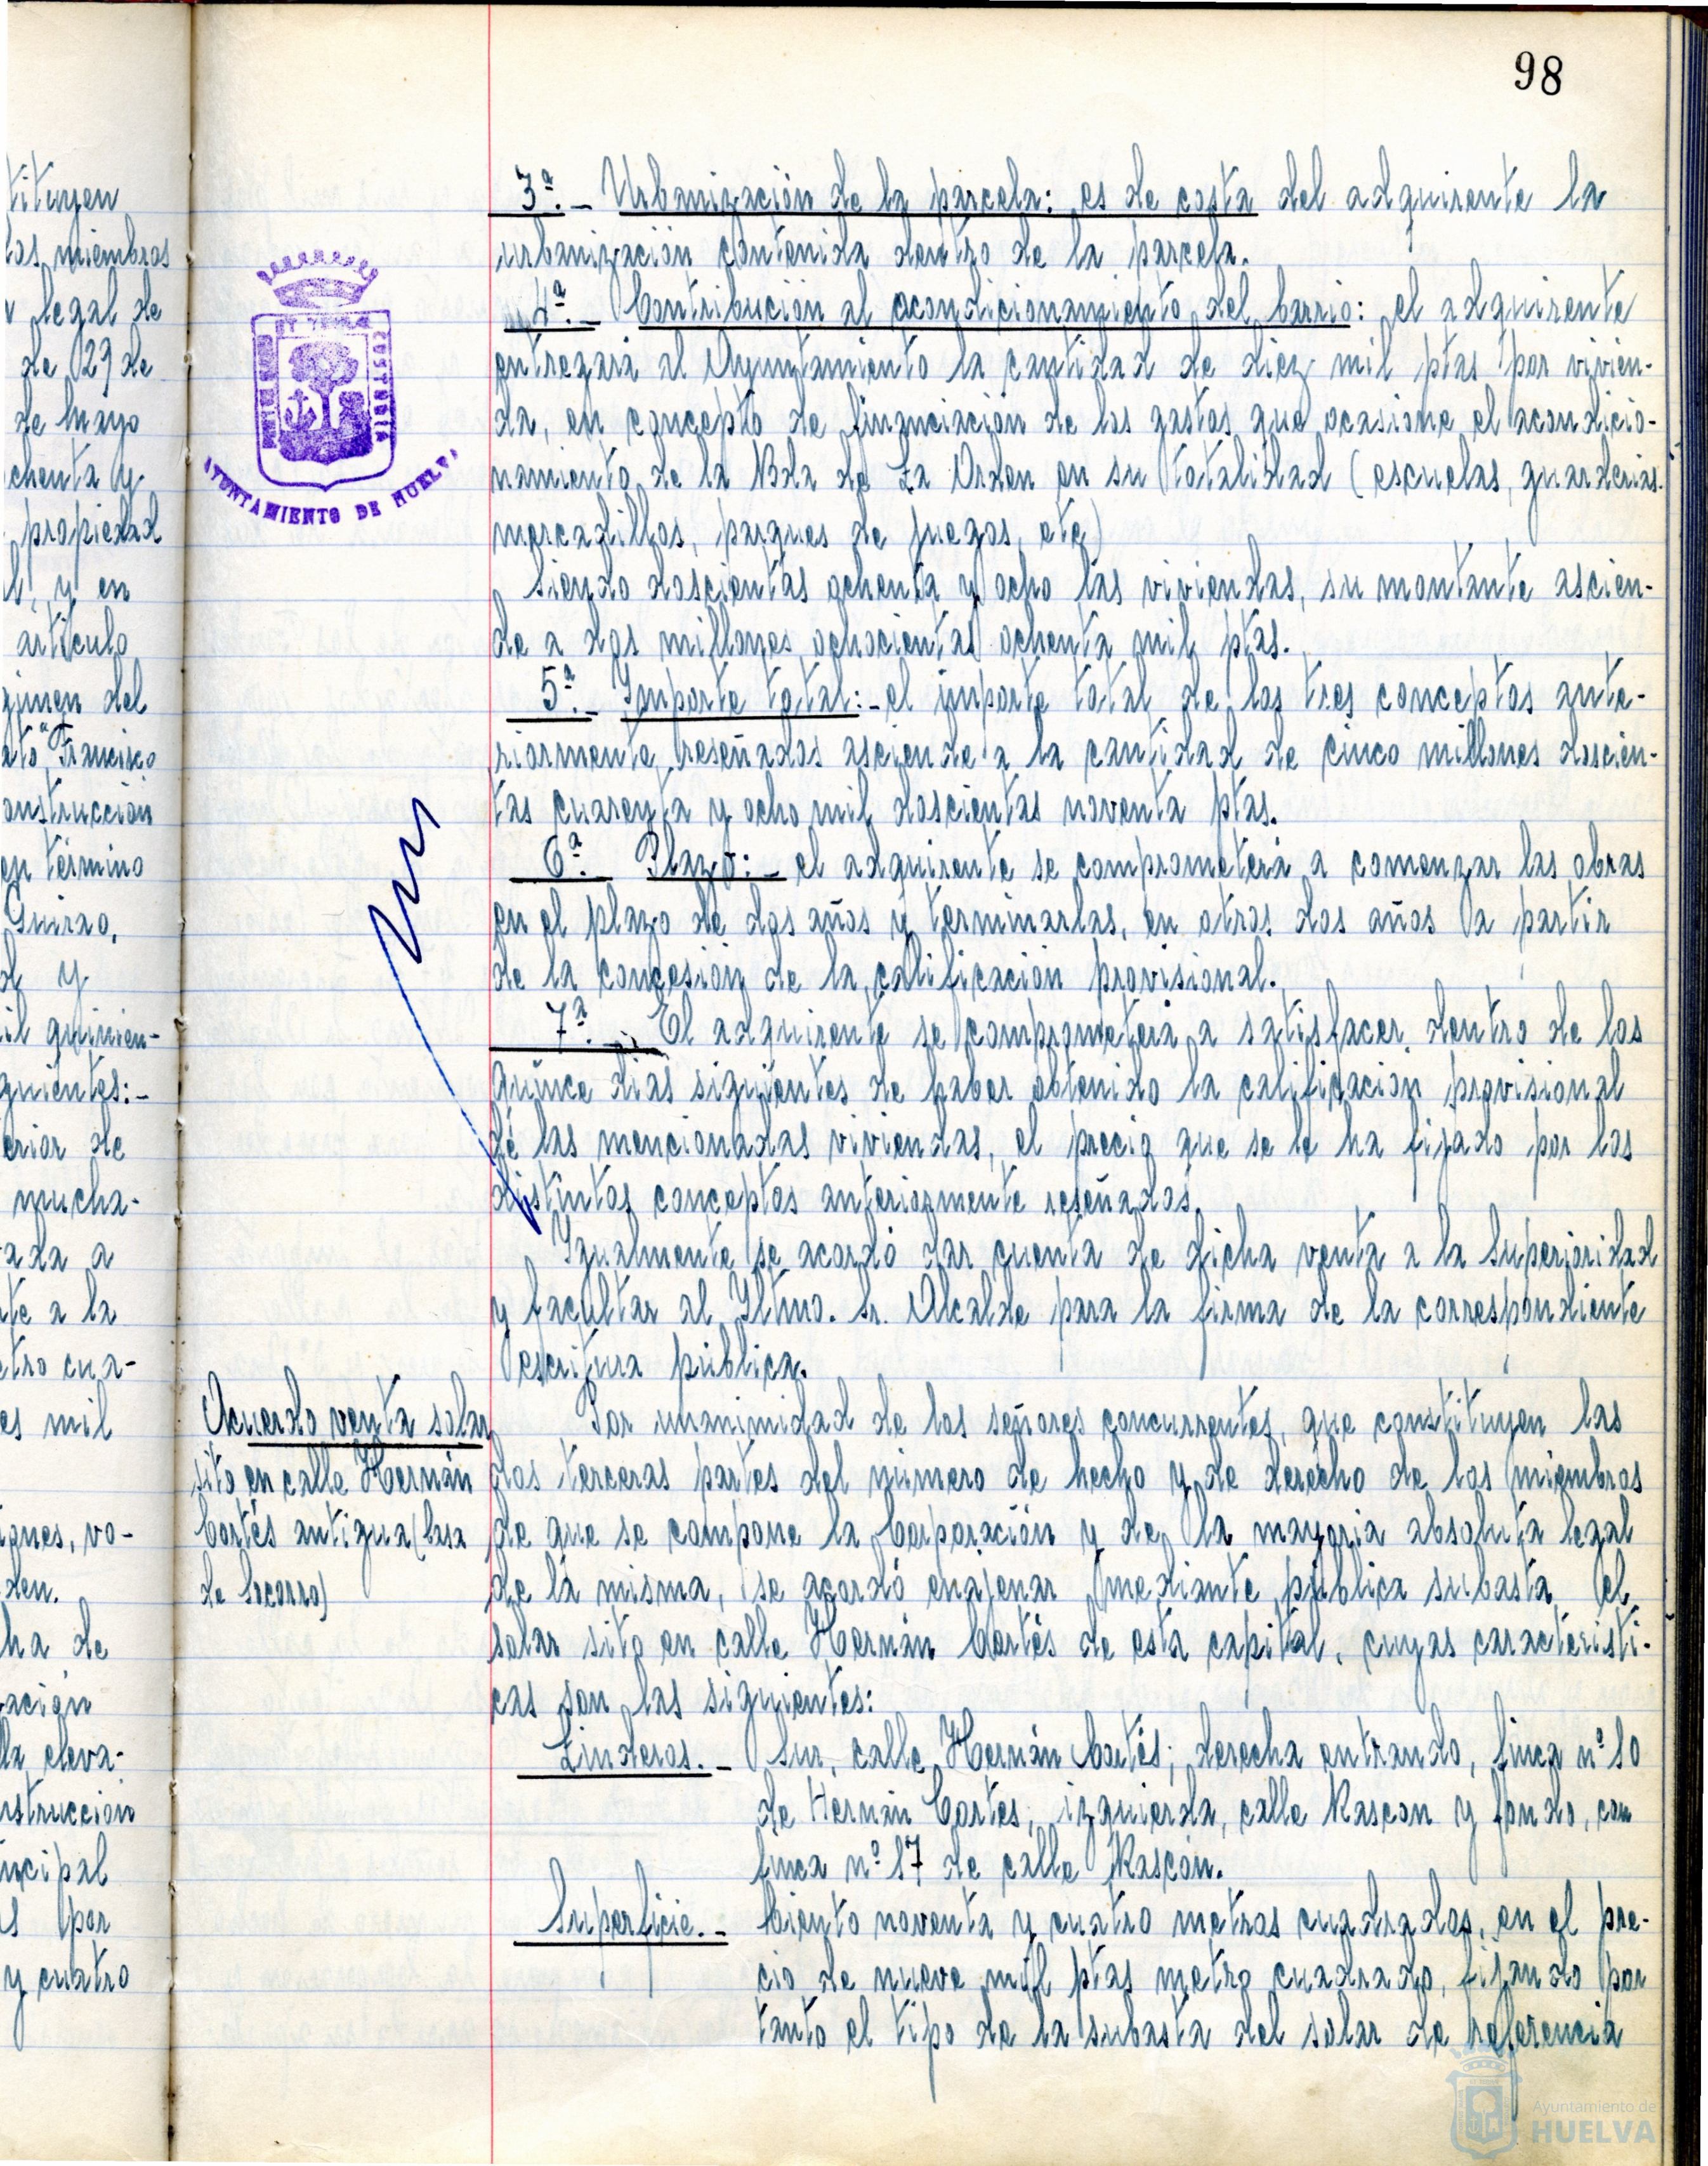 98
tituyen
los miembros
legal de
de 27 de
de Mayo
chenta y
propiedad
y en
artículo
gimen del
ato "Francisco
onstrucción
en término
Guirao,
d y
il quinien-
guientes:-
erior de
mucha-
ada a
te a la
etro cua-
es mil
ones, vo-
den.
ha de
ación
la eleva-
nstrucción
ncipal
s por
y cuatro
AYUNTAMIENTO DE HUELVA
3ª.- Urbanización de la parcela: es de costa del adquirente la
urbanización contenida dentro de la parcela.
4ª.- Contribución al acondicionamiento del barrio: el adquirente
entregará al Ayuntamiento la cantidad de diez mil ptas por vivien-
da, en concepto de financiación de los gastos que ocasione el acondicio-
namiento de la Bda de La Orden en su totalidad (escuelas, guarderias.
mercadillos, parques de juegos, etc)
Siendo doscientas ochenta y ocho las viviendas, su montante ascien-
de a dos millones ochocientas ochenta mil ptas.
5ª.- Importe total:- el importe total de los tres conceptos ante-
riormente reseñados asciende a la cantidad de cinco millones doscien-
tas cuarenta y ocho mil doscientas noventa ptas.
6ª. Plazo:- el adquirente se comprometerá a comenzar las obras
en el plazo de dos años y terminarlas, en otros dos años a partir
de la concesión de la calificación provisional.
7ª.- El adquirente se comprometerá a satisfacer dentro de los
quince dias siguientes de haber obtenido la calificación provisional
de las mencionadas viviendas, el precio que se le ha fijado por los
distintos conceptos anteriormente reseñados.
Igualmente se acordó dar cuenta de dicha venta a la Superioridad
y facultar al Iltmo. Sr. Alcalde para la firma de la correspondiente
escritura pública.
Acuerdo venta solar
sito en calle Hernán
Cortés antigua (Casa
de Socorro)
Por unanimidad de los señores concurrentes, que constituyen las
dos terceras partes del número de hecho y de derecho de los miembros
de que se compone la Corporación y de la mayoria absoluta legal
de la misma, se acordó enajenar mediante pública subasta el
solar sito en calle Hernán Cortés de esta capital, cuyas caracteristi-
cas son las siguientes:
Linderos.- Sur, calle Hernán Cortés; derecha entrando, finca nº 10
de Hernán Cortes; izquierda, calle Rascon y fondo, con
finca nº 17 de calle Rascón.
Superficie.- Ciento noventa y cuatro metros cuadrados, en el pre-
cio de nueve mil ptas metro cuadrado, fijando por
tanto el tipo de la subasta del solar de referencia
Ayuntamiento de
HUELVA